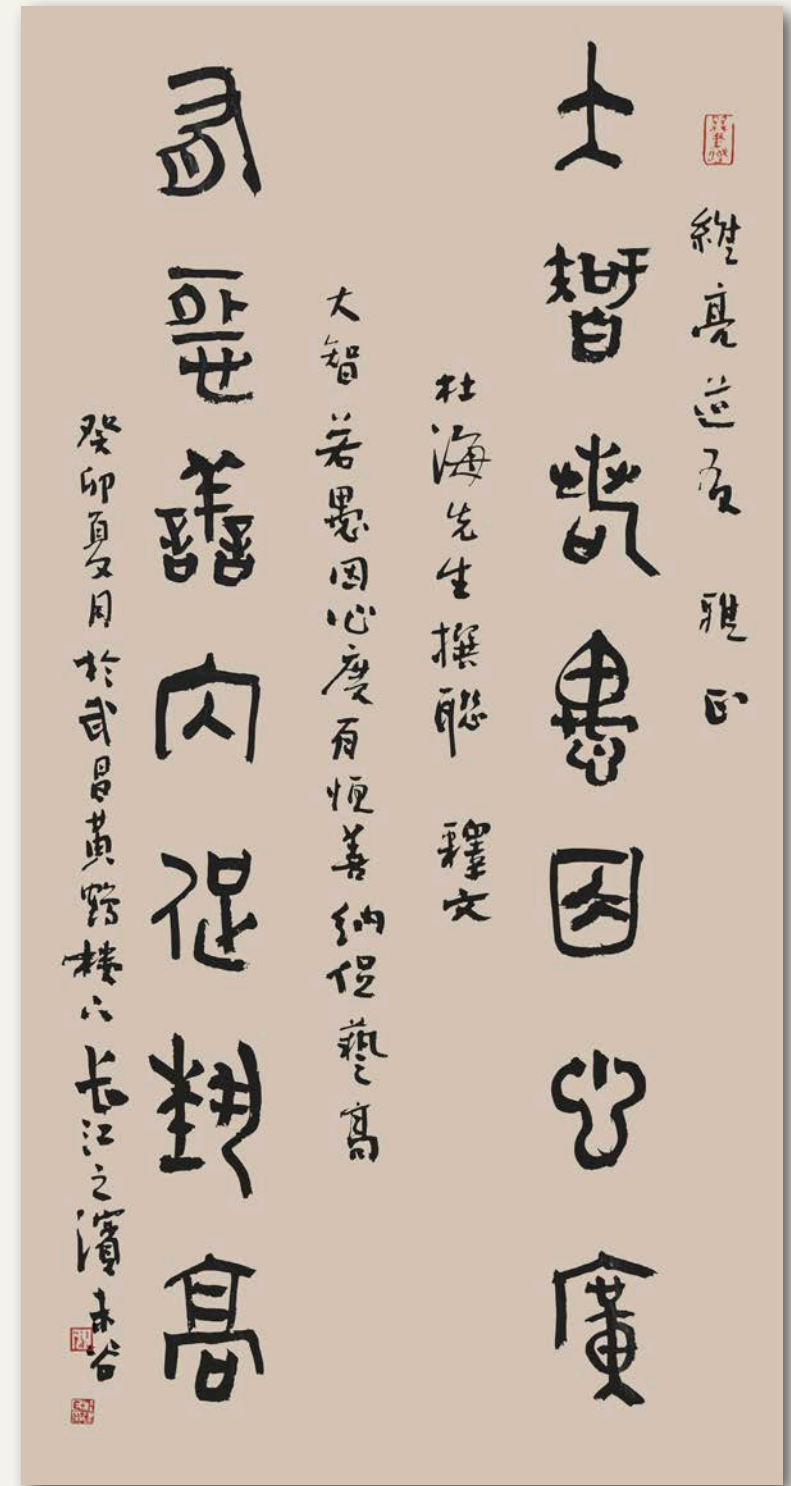 維亮道友 雅正
大智若愚因心廣
杜海先生撰聯 釋文
大智若愚因心廣有恒善納促藝高
有恒善内促藝高
癸卯夏月於武昌黃鶴樓下長江之濱